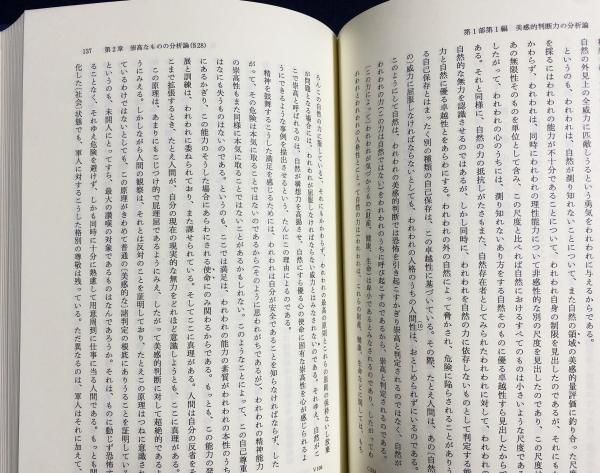 第1部第1編　美感的判断力の分析論
自然の外見上の全威力に匹敵しうるという勇気をわれわれに与えるからである。
というのも、われわれは、自然が測り知れないことについて、また自然の領域の美感的量評価に釣り合った尺
を採るにはわれわれの能力が不十分であることについて、われわれ自身の制限を見出したのであるが、それに
かわらず、われわれは、同時にわれわれの理性能力について非感性的な別の尺度を見出したのであり、この尺度
あの無限性そのものを単位として含み、この尺度と比べれば自然におけるすべてのものは小さいような尺度
したがって、われわれの心のうちには、測り知れないあり方をする自然そのものに優る卓越性すら見出したから
ある。それと同様に、自然の力の抵抗しがたさもまた、自然存在者としてみられたわれわれに対して、われわれ
自然的な無力を認識させるのではあるが、しかし同時に、われわれを自然の力に依存しないものとして判定する
力と自然に優る卓越性とをあらわにする。われわれの外の自然によって脅かされ、危険に陥らされることがあり
る自己保存とはまったく別の種類の自己保存は、この卓越性に基づいている。その際、たとえ人間は、あの〔自然
の〕威力に屈服しなければならないとしても、われわれの人格のうちの人間性は、おとしめられずにいるのである。
このようにして自然は、われわれの美感的判断では恐怖を引き起こすかぎり崇高と判定されるのではなく、自然が
われわれの力(この力は自然ではない)をわれわれのうちに呼び起こすのであるから、崇高と判定されるのである。
(この力によって)われわれが気づかうもの(財産、健康、生命)は
137　第2章　崇高なものの分析論(§28)
が問題となる場合には、われわれが屈服しなければならない威力とはみなされないのである。それゆえ、自然がこ
こで崇高と呼ばれるのは、自然が構想力を高揚させ、自然にすら優る心の使命に固有な崇高性を心が感じられるよ
うにできるような事例を描出させるという、たんにこの理由によるのである。
精神を鼓舞するこうした満足を感じるためには、われわれは自分が安全であることを知らなければならず、した
がって、その危険は本気に取ることではないのであるから(そのように思われがちであるが)、われわれの精神能力
の崇高性もまた同様に本気に取ることではないことがあるかもしれない。このようなことによって、この自己尊重
はなにも失うものはないのである。というのも、ここでは満足は、われわれの能力の素質がわれわれの本性のうち
にあるかぎり、この能力のそうした場合にあらわにされる使命にのみ関わるからである。もっとも、この能力の発
展と訓練は、われわれに委ねられており、また課せられている。そしてここに真理がある。人間は自分の反省をそ
こまで拡張するとき、たとえ人間が、自分の現在の現実的な無力をどれほど意識しようとも、ここに真理がある。
この原理は、あまりにもこじつけ的で屁理屈であるようにみえ、したがって美感的判断に対して超絶的であるよ
うにみえる。しかしながら人間の観察は、それとは反対のことを証明しており、たとえこの原理はつねに意識され
ているわけではないとしても、この原理がきわめて普通の〔美感的な〕諸判定の根底にありうることを証明している。
というのも、未開人にとってすら、最大の讃嘆の対象であるものはなんであろうか。それは、ものに動じず、恐れ
ることなく、それゆえ危険を避けず、しかも同時に十分に熟慮して用意周到に仕事に当る人間である。もっとも開
化した〔社会〕状態でも、軍人に対するこうした格別の尊敬は残っている。ただ異なるのは、軍人はそれに加えて、